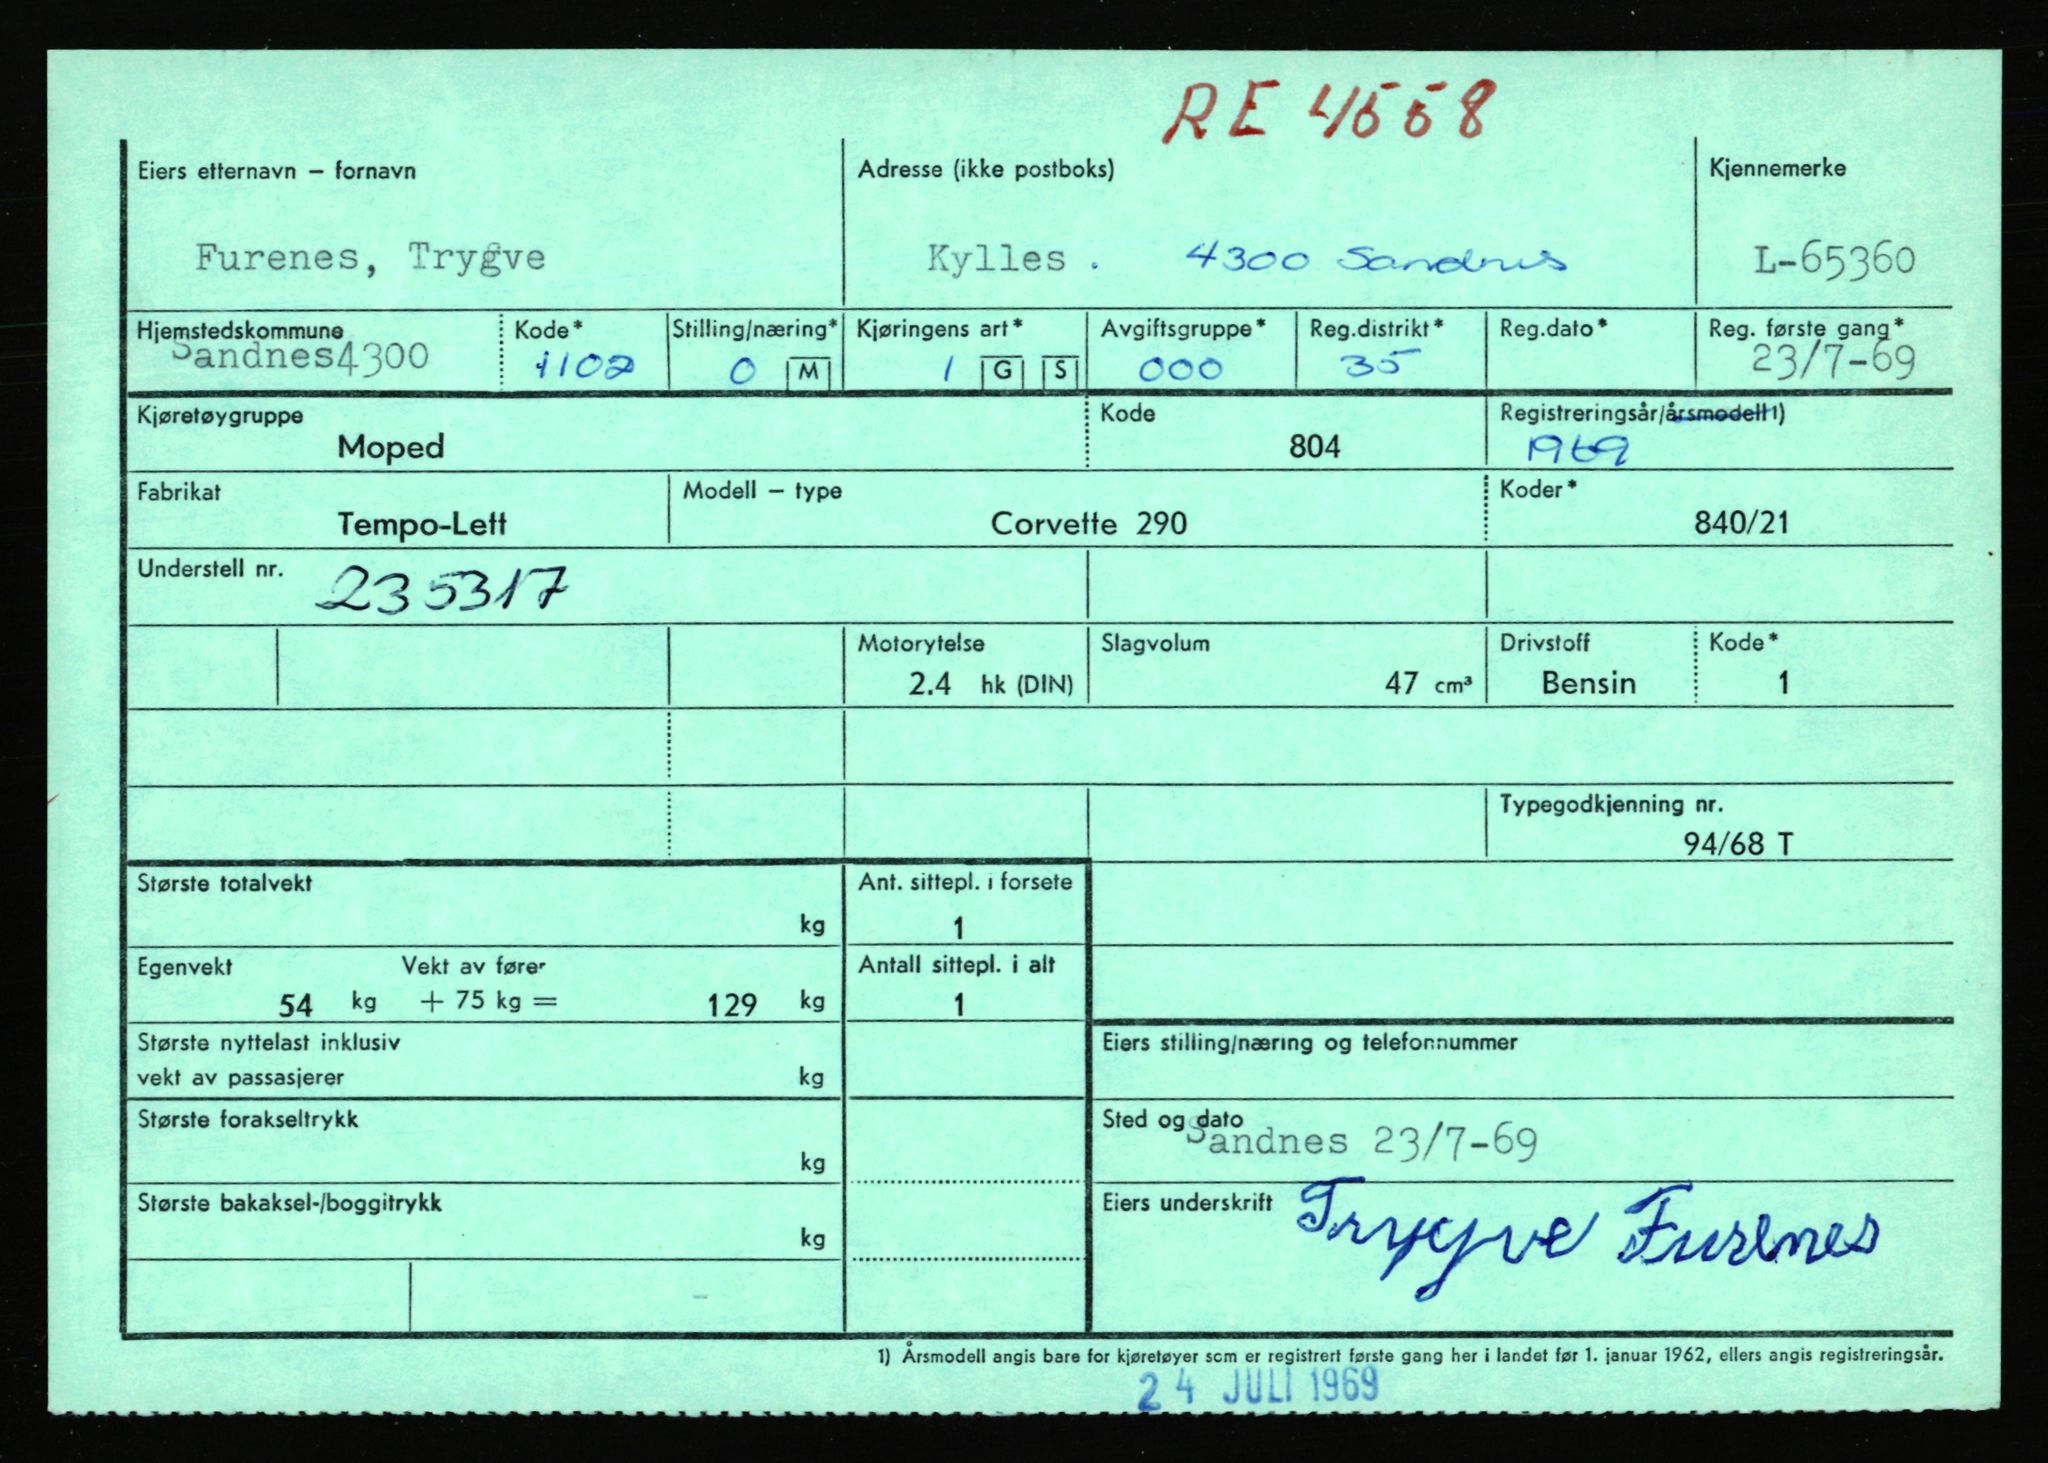 RE 4558
Eiers etternavn – fornavn Adresse (ikke postboks) Kjennemerke
Furenes, Trygve Kylles . 4300 Sandnes L-65360
Hjemstedskommune Kode* Stilling/næring* Kjøringens art* Avgiftsgruppe* Reg.distrikt* Reg.dato* Reg. første gang*
Sandnes4300 1102 0 M 1 G S 000 35 23/7-69
Kjøretøygruppe Kode Registreringsår/årsmodell 1)
Moped 804 1969
Fabrikat Modell – type Koder*
Tempo-Lett Corvette 290 840/21
Understell nr. 235317
Motorytelse Slagvolum Drivstoff Kode*
2.4 hk (DIN) 47 cm³ Bensin 1
Typegodkjenning nr.
94/68 T
Største totalvekt Ant. sittepl. i forsete
kg 1
Egenvekt Vekt av fører Antall sittepl. i alt
54 kg + 75 kg = 129 kg 1
Største nyttelast inklusiv Eiers stilling/næring og telefonnummer
vekt av passasjerer kg
Største forakseltrykk Sted og dato
kg Sandnes 23/7-69
Største bakaksel-/boggitrykk Eiers underskrift Trygve Furenes
kg
1) Årsmodell angis bare for kjøretøyer som er registrert første gang her i landet før 1. januar 1962, ellers angis registreringsår.
24 JULI 1969